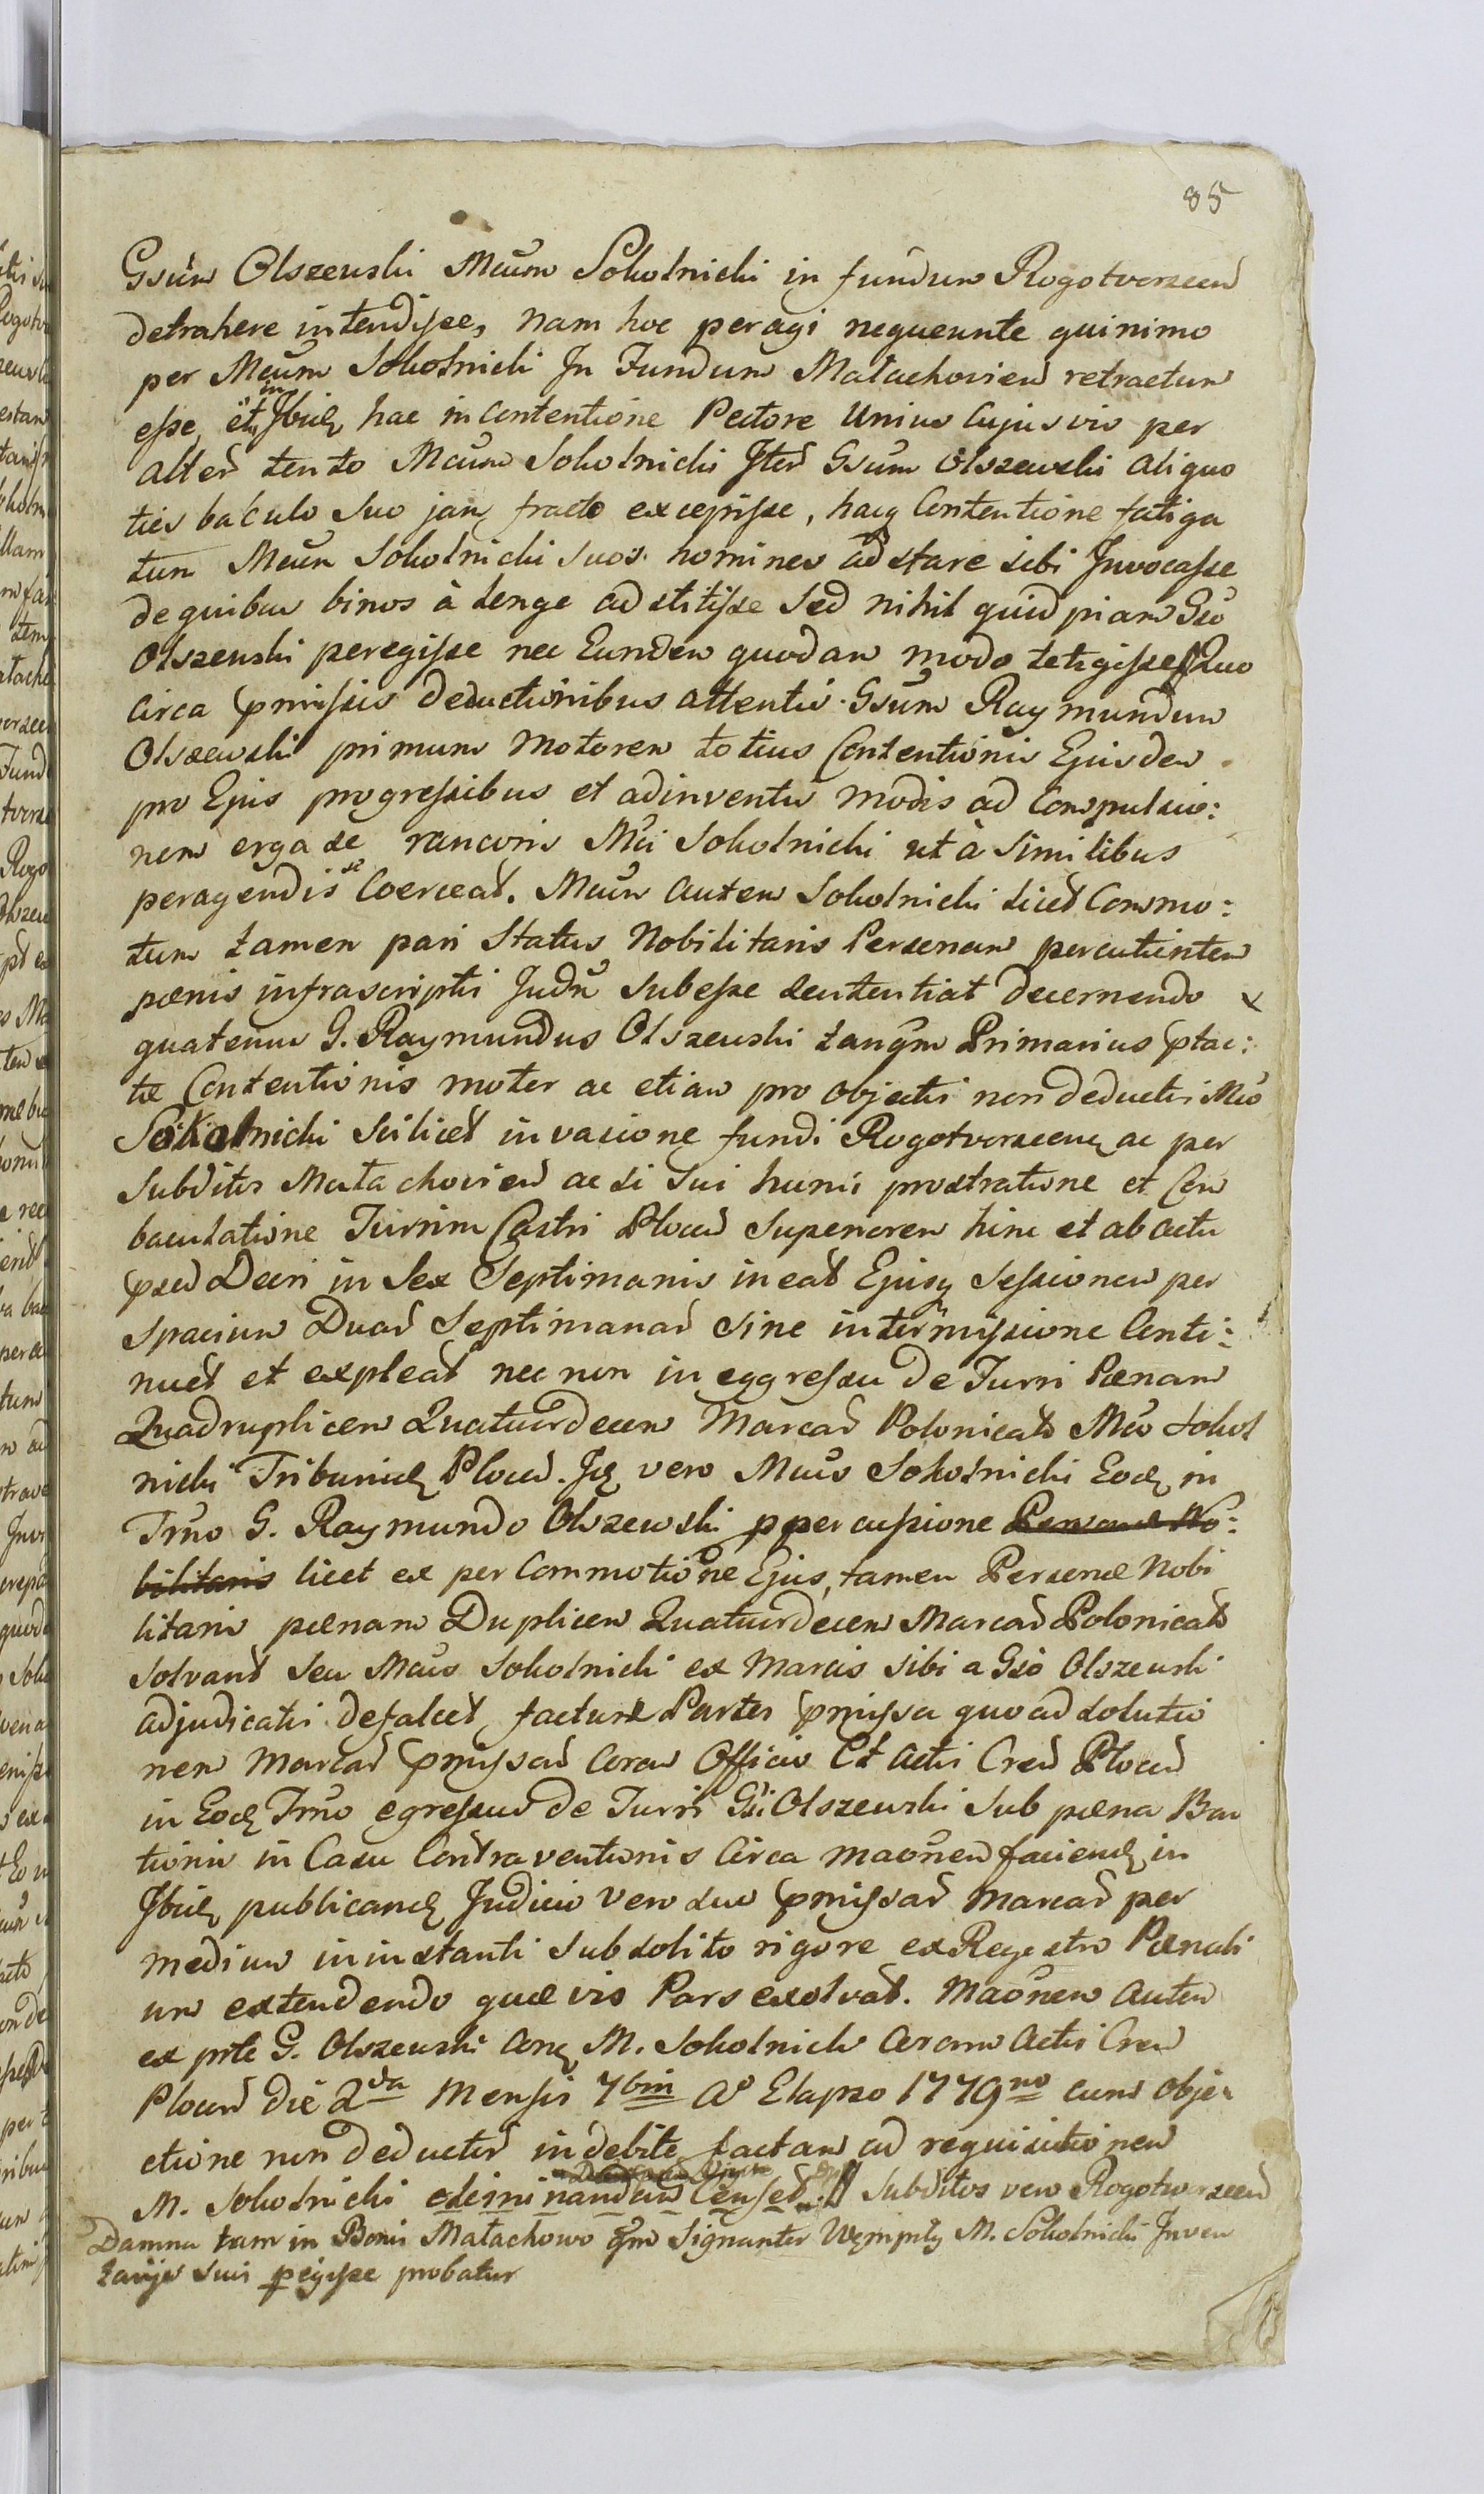 85
Gsum Olszewski Mcum Sokolnicki in fundum Rogotworscen
detrahere intendisse, nam hoc peragi nequeunte quinimo
per Mcum Sokolnicki In Fundum Małachovien retractum
esse et in Ibid hac in Contentione Pectore Unius Cujusvis per
alter tento Mcum Sokolnicki Iter Gsum Olszewski aliquo
ties baculo suo jam fracto excepisse, hacq Contentione fatiga
tum Mcum Sokolnicki suos homines adstare sibi Invocasse
de quibus binos à longe adstitisse sed nihil quidpiam Gso
Olszewski peregisse nec Eundem quodam modo tetigisse Quo
circa pmissis deductionibus attentis Gsum Raymundum
Olszewski primum Motorem totius Contentionis Ejusdem
pro Ejus progressibus et adinventis modis ad Compulsio:
nem erga se rancoris Mci Sokolnicki ut à Similibus
peragendis se Coerceat. Mcum autem Sokolnicki licet Commo:
tum tamen pari Status Nobilitaris Personam percutientem
pœnis infrascriptis Judm Subesse sententiat decernendo
quatenus G. Raymundus Olszewski tanqm Primarius ptac:
tæ Contentionis motor ac etiam pro objectis non deductis Mco
Sokolnicki Scilicet invasione fundi Rogotworscen ac per
Subditos Małachovien ac si Sui humi prostratione et Con
baculatione Turrim Castri Plocen Superiorem hinc et ab actu
psen Decri in Sex Septimanis ineat Ejusq Sessionem per
Spacium Duar Septimanar Sine intermissione Conti:
nuet et expleat nec non in eggressu de Turri Pœnam
Quadruplicem Quatuordecem Marcar Polonical Mco Sokol
nicki Tribunid Plocen. Itq vero Mcus Sokolnicki Eod in
Trno G. Raymundo Olszewski p percussione Personæ No:
bilitaris licet ex per Commotione Ejus, tamen Personæ Nobi
litaris pœnam Duplicem Quatuordecem Marcar Polonical
Solvant seu Mcus Sokolnicki ex Marcis sibi a Gso Olszewski
adjudicatis defalcet, facturæ Partes pmissa quoad Solutio
nem Marcar pmissar Coram Officio Et Actis Cren Plocen
in Eod Trno egressus de Turri Gsi Olszewski Sub pœna Ban
tionis in Casu Contraventionis Circa maonem faciend in
Ibid publicand Judicio Vero suo pmissar Marcar per
medium in instanti Sub solito rigore ex Regestro Pœnali
um extendendo quævis Pars exolvat. Maonem autem
ex prte G. Olszewski Con M. Sokolnicki Coram Actis Cren
Plocen die 2da Mensis 7bris Ao Elapso 1779no cum obje
ctione non deductor indebite factam ad requisitionem
M. Sokolnicki eliminandam Censet. Subditos vero Rogotworscen
Damna tam in Bonis Małachowo qm Signanter Wempiły M. Sokolnicki Inven
tarijs suis pegisse probatur